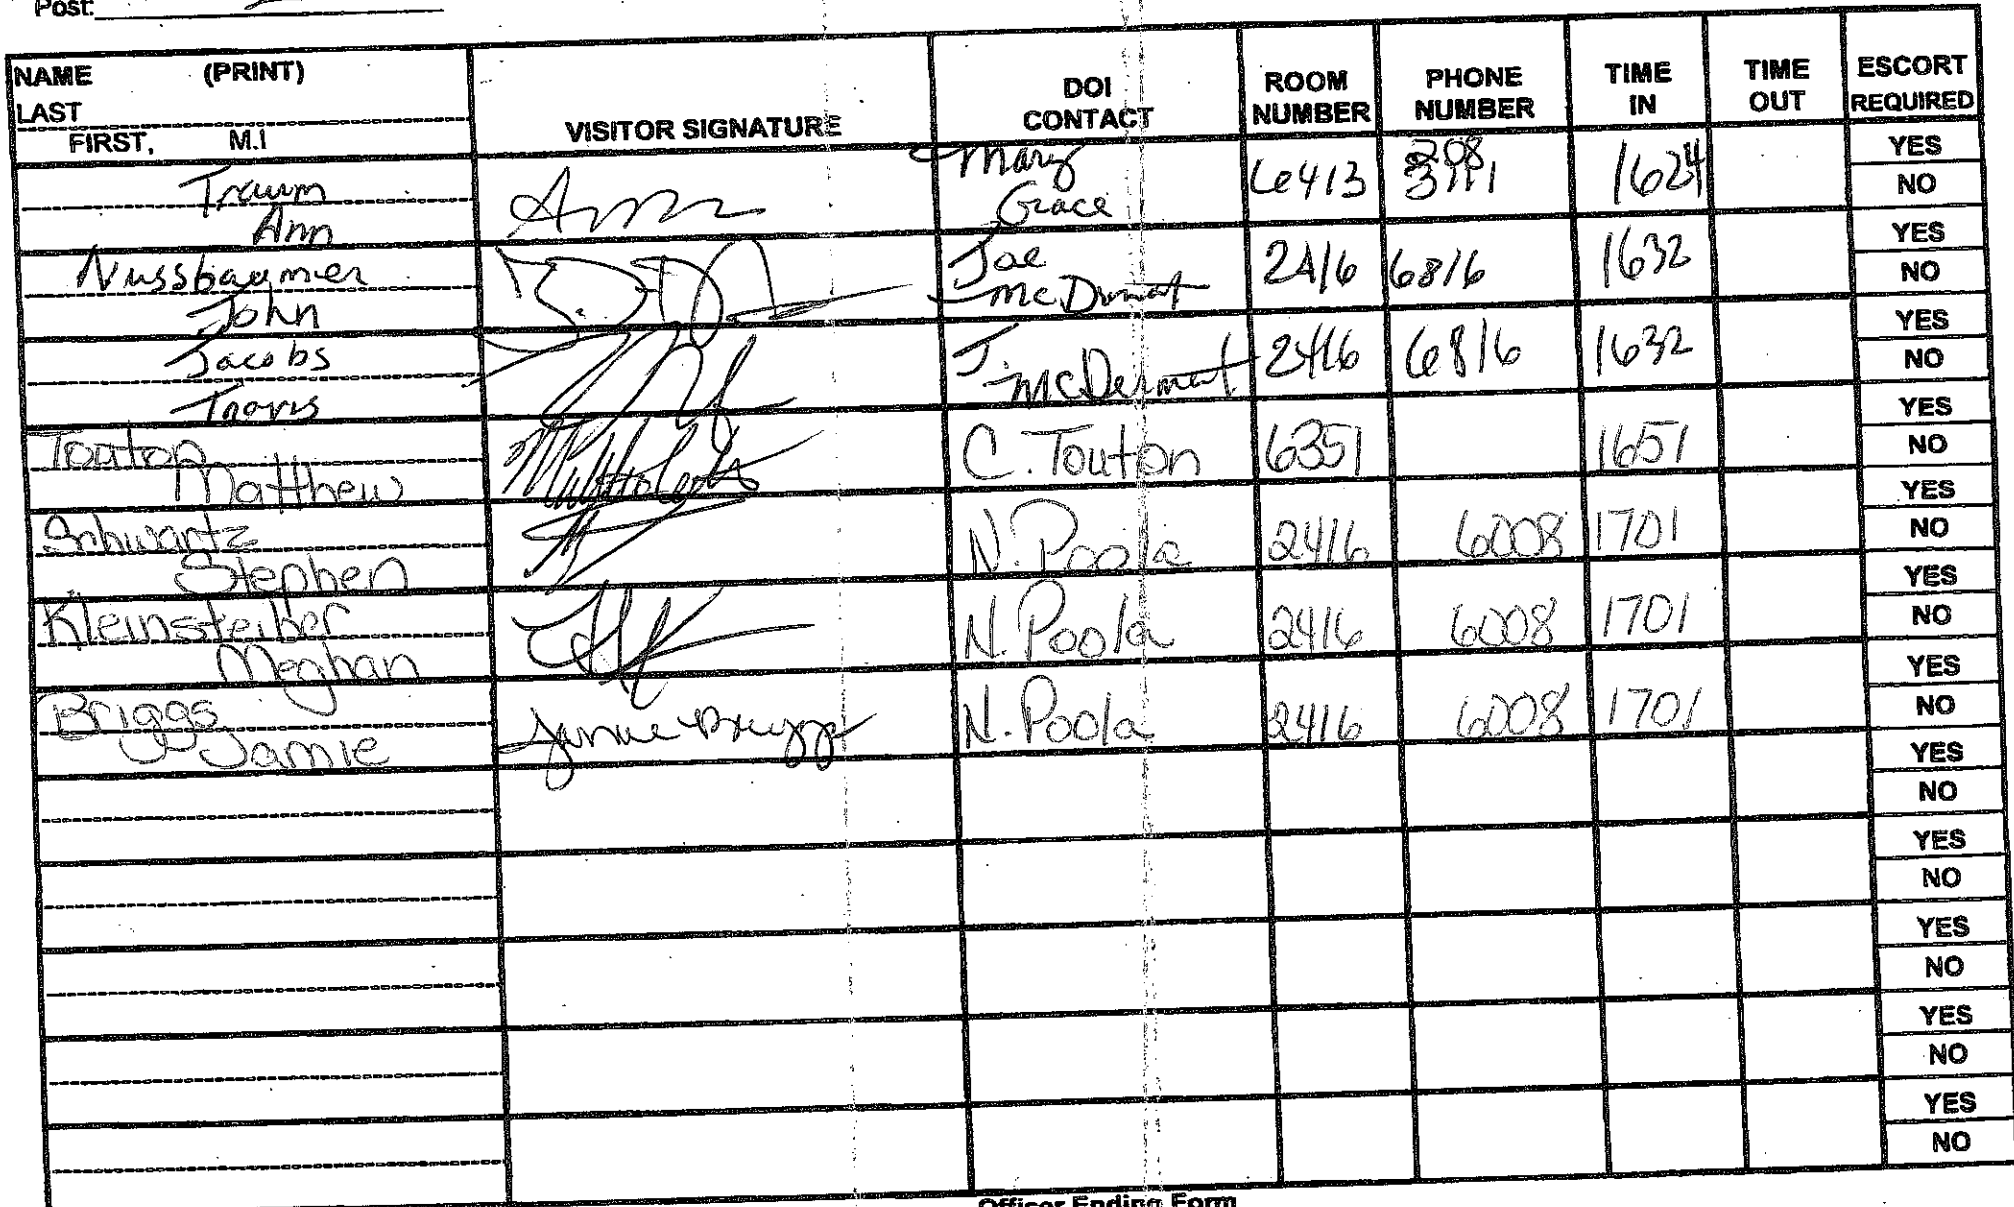 Post:
NAME (PRINT)
LAST
FIRST, M.I
VISITOR SIGNATURE
DOI
CONTACT
ROOM
NUMBER
PHONE
NUMBER
TIME
IN
TIME
OUT
ESCORT
REQUIRED
Traum
Ann
Mary
Grace
6413
208
3111
1624
YES
NO
Nussbaumer
John
Joe
McDermat
2416
6816
1632
YES
NO
Jacobs
Travis
J.
McDermat
2416
6816
1632
YES
NO
Touton
Matthew
C. Touton
6351
1651
YES
NO
Schwartz
Stephen
N. Poola
2416
6008
1701
YES
NO
Kleinsteiber
Meghan
N. Poola
2416
6008
1701
YES
NO
Briggs
Jamie
Jamie Briggs
N. Poola
2416
6008
1701
YES
NO
YES
NO
YES
NO
YES
NO
YES
NO
YES
NO
Officer Ending Form